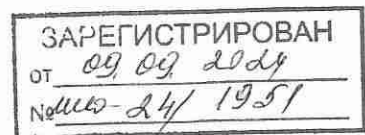 ЗАРЕГИСТРИРОВАН
от 09.09.2024
№ -24/1951